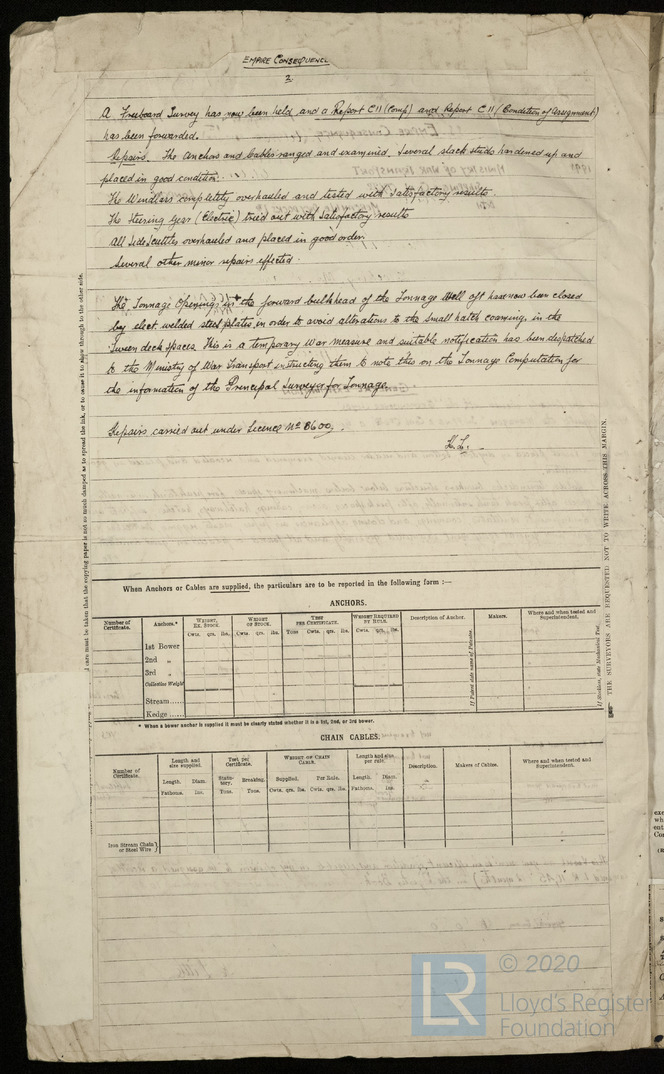 EMPIRE CONSEQUENCE
2.
A Freeboard Survey has now been held and a Report C11 (Comp) and Report C.11 (Condition of Assignment)
has been forwarded.
Repairs. The Anchors and Cables ranged and examined. Several slack studs hardened up and
placed in good condition.
The Windlass completely overhauled and tested with satisfactory results
The Steering Gear (Electric) tried out with satisfactory results
All Sidescuttles overhauled and placed in good order.
Several other minor repairs effected.
The Tonnage Openings in the forward bulkhead of the Tonnage Well aft have now been closed
by elect welded steel plates, in order to avoid alterations to the small hatch coaming, in the
Tween deck spaces. This is a temporary War measure and suitable notification has been despatched
to the Ministry of War Transport instructing them to note this on the Tonnage Computation for
the information of the Principal Surveyor for Tonnage.
Repairs carried out under Licence No 8600.
care must be taken that the copying paper is not so much damped as to spread the ink, or to cause it to show through to the other side.
THE SURVEYORS ARE REQUESTED NOT TO WRITE ACROSS THIS MARGIN.
When Anchors or Cables are supplied, the particulars are to be reported in the following form :—
ANCHORS.
Number of Certificate. Anchors.* Weight, Ex. Stock. Weight of Stock. Test per Certificate. Weight Required by Rule. Description of Anchor. Makers. Where and when tested and Superintendent.
Cwts. qrs. lbs. Cwts. qrs. lbs. Tons Cwts. qrs. lbs. Cwts. qrs. lbs.
1st Bower
2nd „
3rd „
Collective Weight
Stream
Kedge
* When a bower anchor is supplied it must be clearly stated whether it is a 1st, 2nd, or 3rd bower.
CHAIN CABLES.
Number of Certificate. Length and size supplied. Test per Certificate. Weight of Chain Cable. Length and size per rule. Description. Makers of Cables. Where and when tested and Superintendent.
Length. Diam. Statutory. Breaking. Supplied. Per Rule. Length. Diam.
Fathoms. Ins. Tons. Tons. Cwts. qrs. lbs. Cwts. qrs. lbs. Fathoms. Ins.
Iron Stream Chain or Steel Wire
LR
© 2020
Lloyd's Register
Foundation